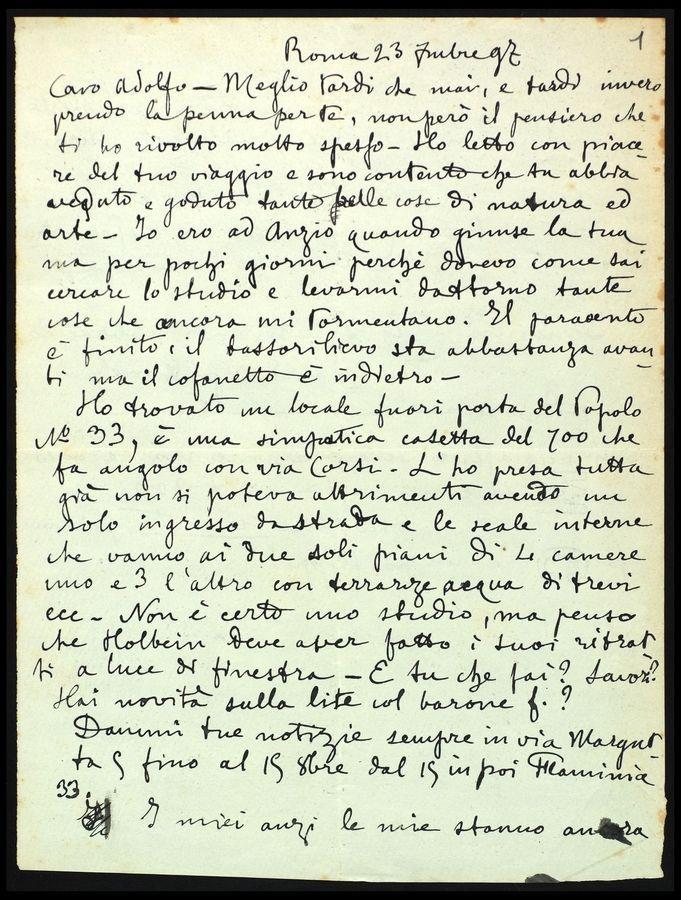 1
Roma 23 7mbre 97
Caro Adolfo — Meglio tardi che mai, e tardi invero
prendo la penna per te, non però il pensiero che
ti ho rivolto molto spesso — Ho letto con piace-
re del tuo viaggio e sono contento che tu abbia
veduto e goduto tante belle cose di natura ed
arte — Io ero ad Anzio quando giunse la tua
ma per pochi giorni perchè dovevo come sai
cercare lo studio e levarmi dattorno tante
cose che ancora mi tormentano. Il paravento
è finito, il bassorilievo sta abbastanza avan-
ti ma il cofanetto è indietro —
Ho trovato un locale fuori porta del Popolo
No 33, è una simpatica casetta del 700 che
fa angolo con via Corsi — L'ho presa tutta
già non si poteva altrimenti avendo un
solo ingresso da strada e le scale interne
che vanno ai due soli piani di 4 camere
uno e 3 l'altro con terrazze acqua di trevi
ecc — Non è certo uno studio, ma penso
che Holbein deve aver fatto i suoi ritrat-
ti a luce di finestra — E tu che fai? Lavori?
Hai novità sulla lite col barone f. ?
Dammi tue notizie sempre in via Margut-
ta 5 fino al 15 8bre dal 15 in poi Flaminia
33.
I miei anzi le mie stanno ancora